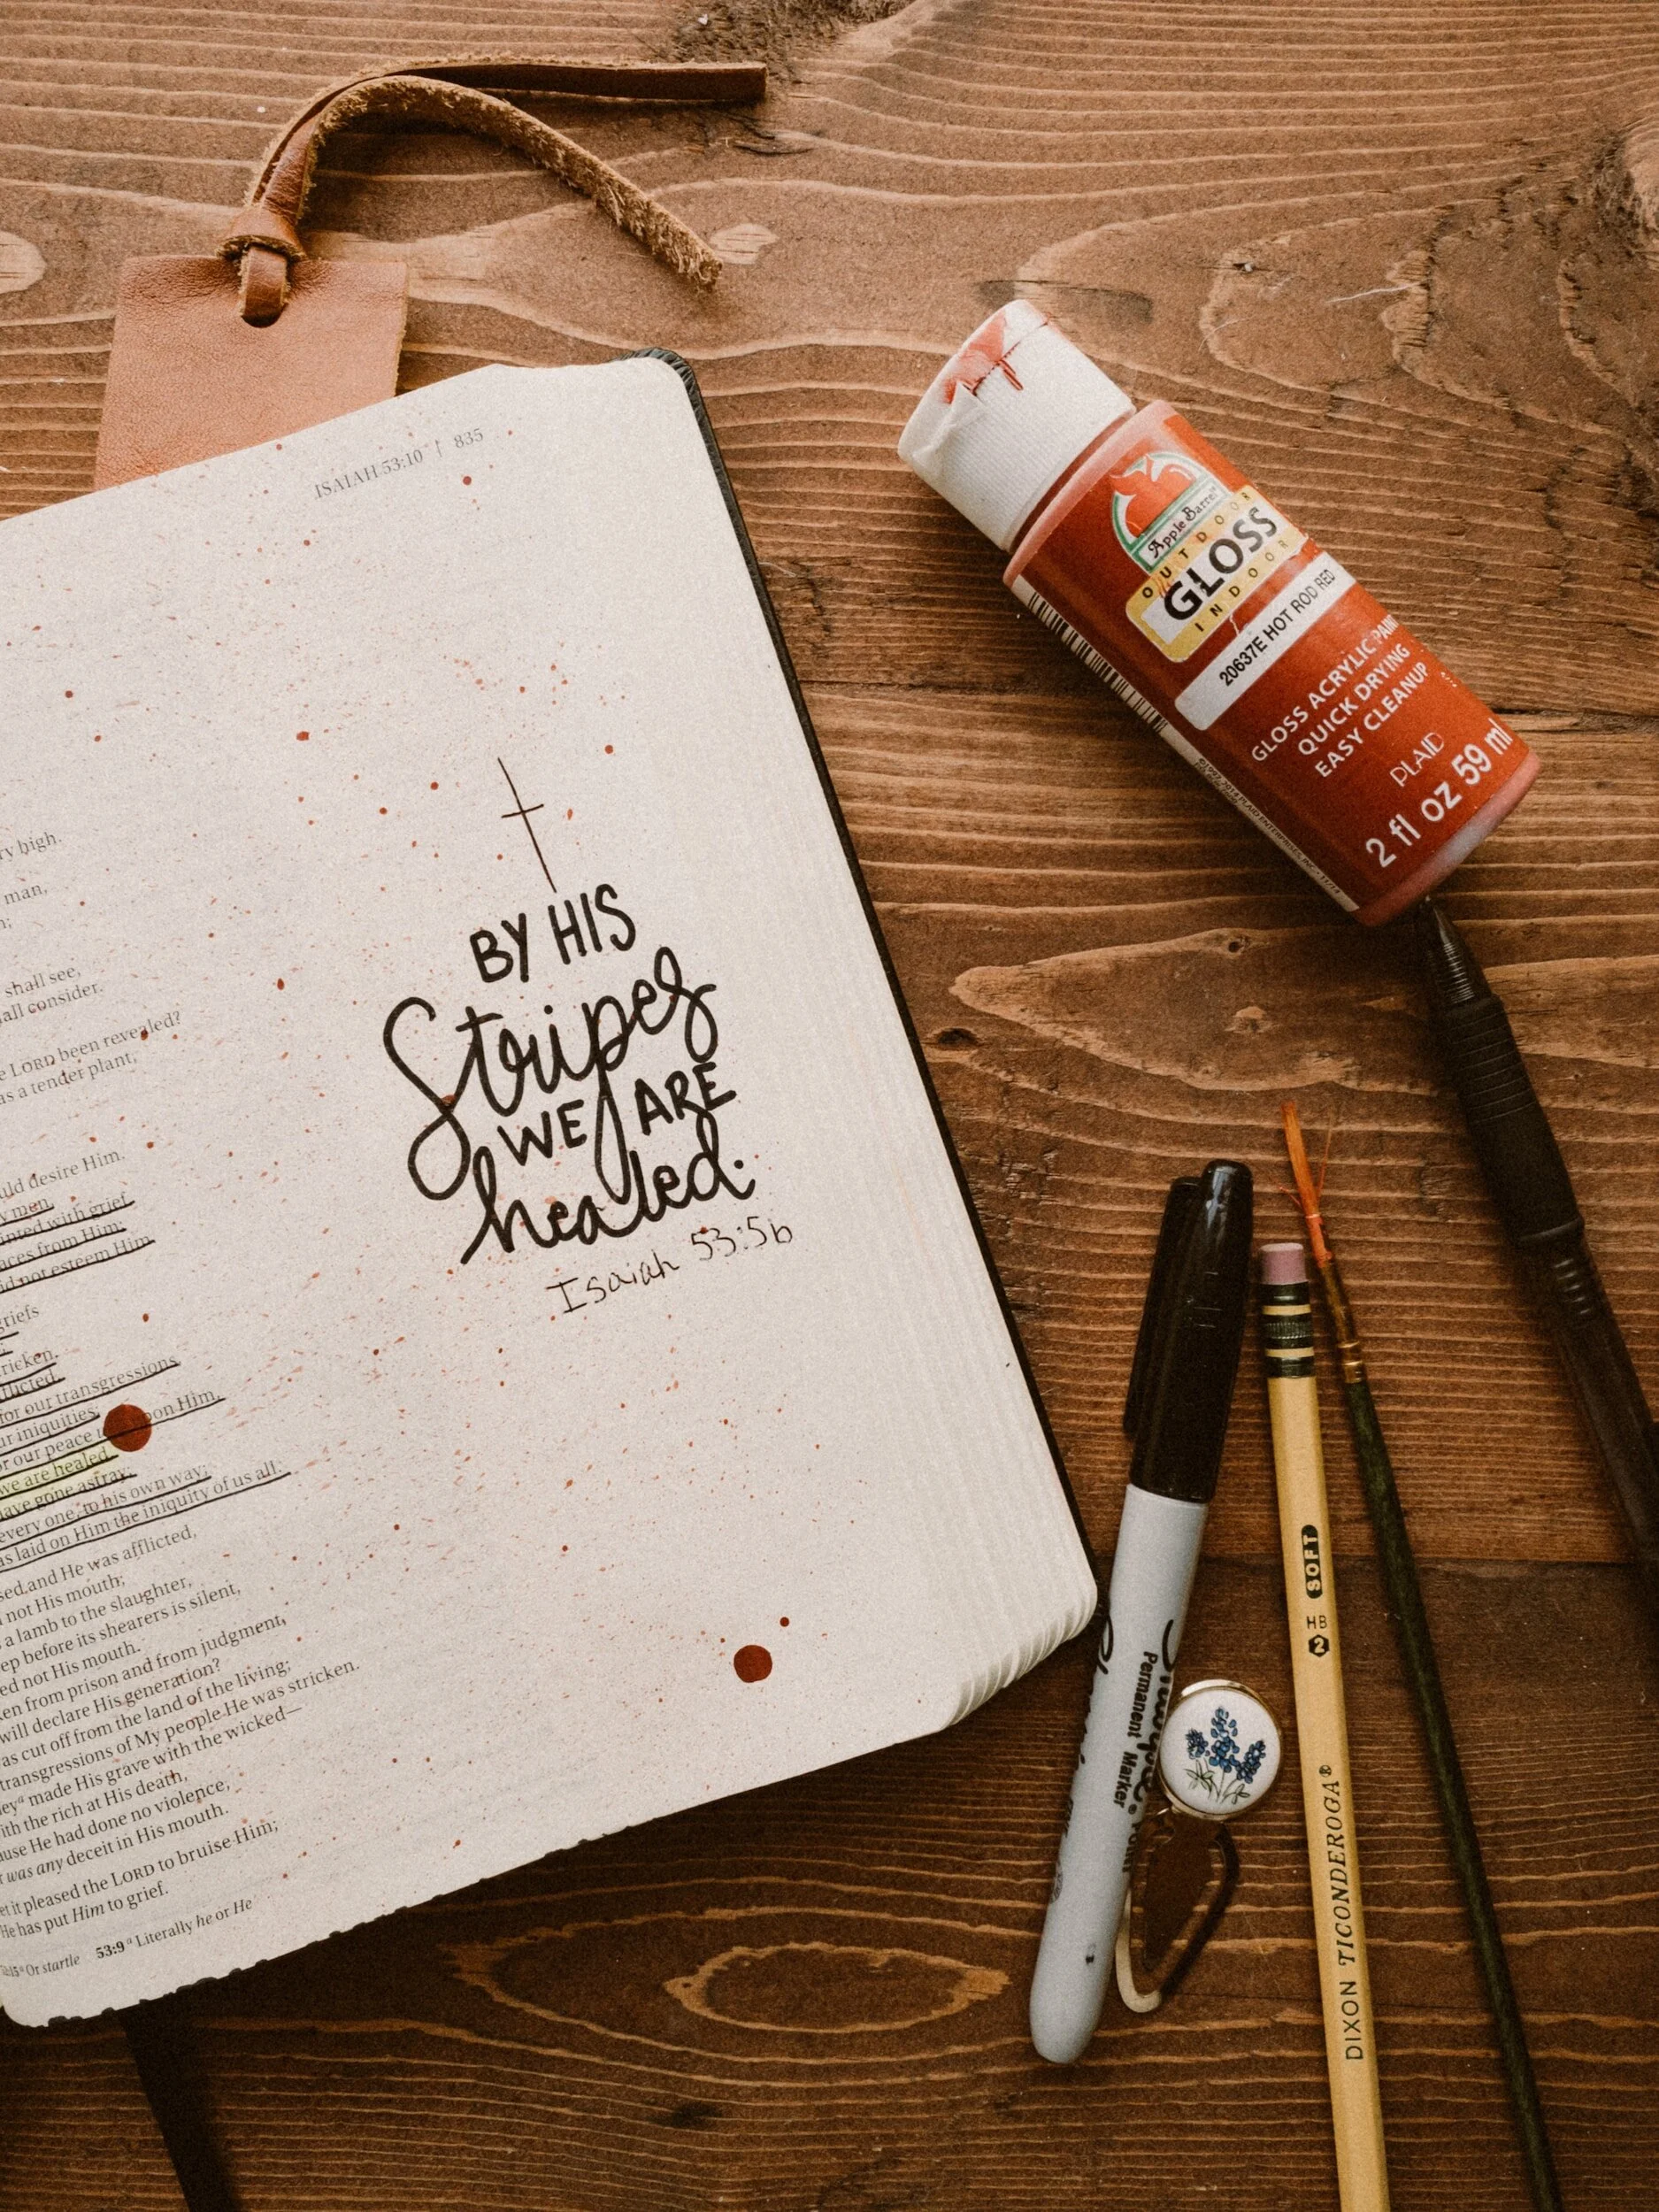 ISAIAH 53:10 | 835
ry high.
man,
shall see,
all consider.
e LORD been revealed?
as a tender plant,
uld desire Him.
men,
inted with grief.
aces from Him;
id not esteem Him.
griefs
ricken,
flicted.
for our transgressions,
ur iniquities;
or our peace upon Him,
we are healed.
have gone astray;
every one, to his own way;
as laid on Him the iniquity of us all.
sed and He was afflicted,
not His mouth;
a lamb to the slaughter,
ep before its shearers is silent,
ed not His mouth.
en from prison and from judgment,
will declare His generation?
as cut off from the land of the living;
transgressions of My people He was stricken.
ey made His grave with the wicked—
ith the rich at His death,
ause He had done no violence,
was any deceit in His mouth.
et it pleased the LORD to bruise Him;
He has put Him to grief.
Or startle 53:9 a Literally he or He
BY HIS
Stripes
WE ARE
healed.
Isaiah 53:5b
Apple Barrel
OUTDOOR
GLOSS
INDOOR
20637E HOT ROD RED
GLOSS ACRYLIC PAINT
QUICK DRYING
EASY CLEANUP
PLAID
2 fl oz 59 ml
Sharpie
Permanent Marker
DIXON TICONDEROGA® HB 2 SOFT